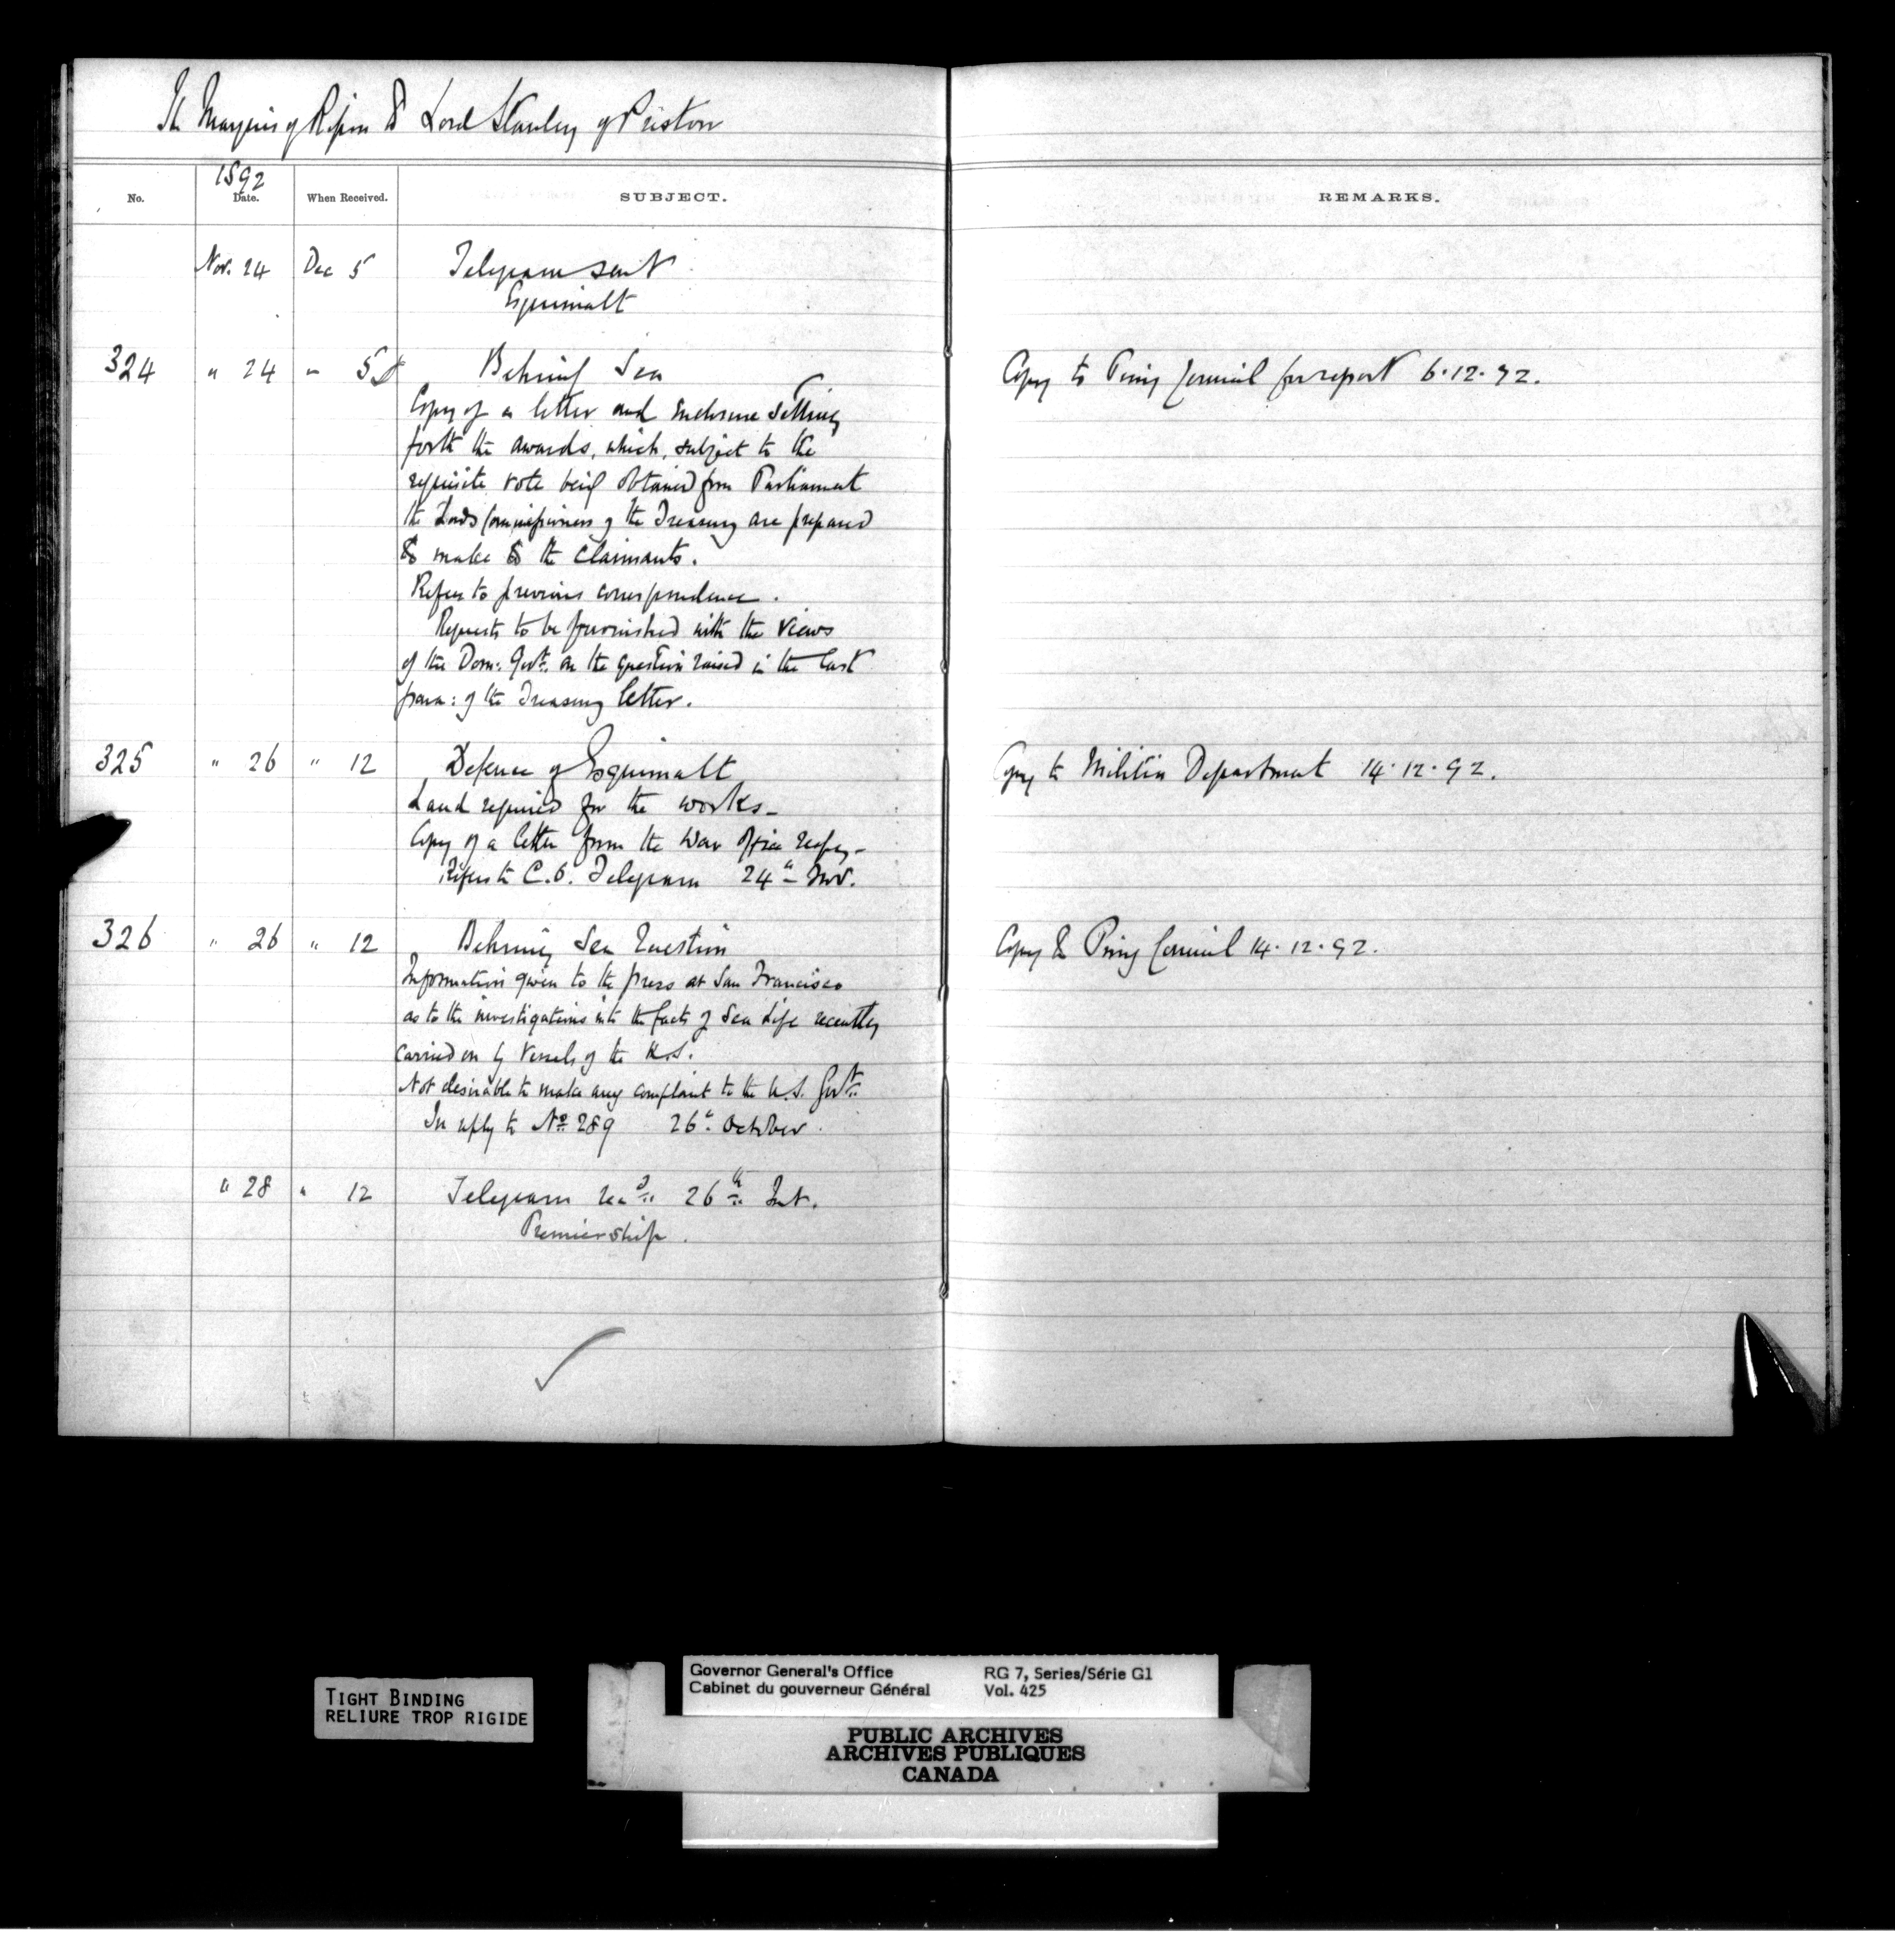 The Marquis of Ripon to Lord Stanley of Preston
No.
1892
Date.
When Received.
SUBJECT.
REMARKS.
Nov. 24 Dec 5 Telegram sent
Esquimalt
324 " 24 " 5 Behring Sea Copy to Privy Council for report 6.12.92.
Copy of a letter and enclosure setting
forth the awards, which, subject to the
requisite vote being obtained from Parliament
the Lords Commissioners of the Treasury are prepared
to make to the claimants.
Refers to previous correspondence.
Requests to be furnished with the views
of the Dom: Govt. on the question raised in the last
para: of the Treasury letter.
325 " 26 " 12 Defence of Esquimalt Copy to Militia Department 14.12.92.
Land required for the works_
Copy of a letter from the War Office respg_
Refers to C.O. Telegram 24th Nov.
326 " 26 " 12 Behring Sea Question Copy to Privy Council 14.12.92.
Information given to the press at San Francisco
as to the investigations into the facts of Sea Life recently
carried on by Vessels of the U.S.
Not desirable to make any complaint to the U.S. Govt.
In reply to No 289 26th October.
" 28 " 12 Telegram recd. 26th Inst.
Premiership.
TIGHT BINDING
RELIURE TROP RIGIDE
Governor General's Office RG 7, Series/Série G1
Cabinet du gouverneur Général Vol. 425
PUBLIC ARCHIVES
ARCHIVES PUBLIQUES
CANADA